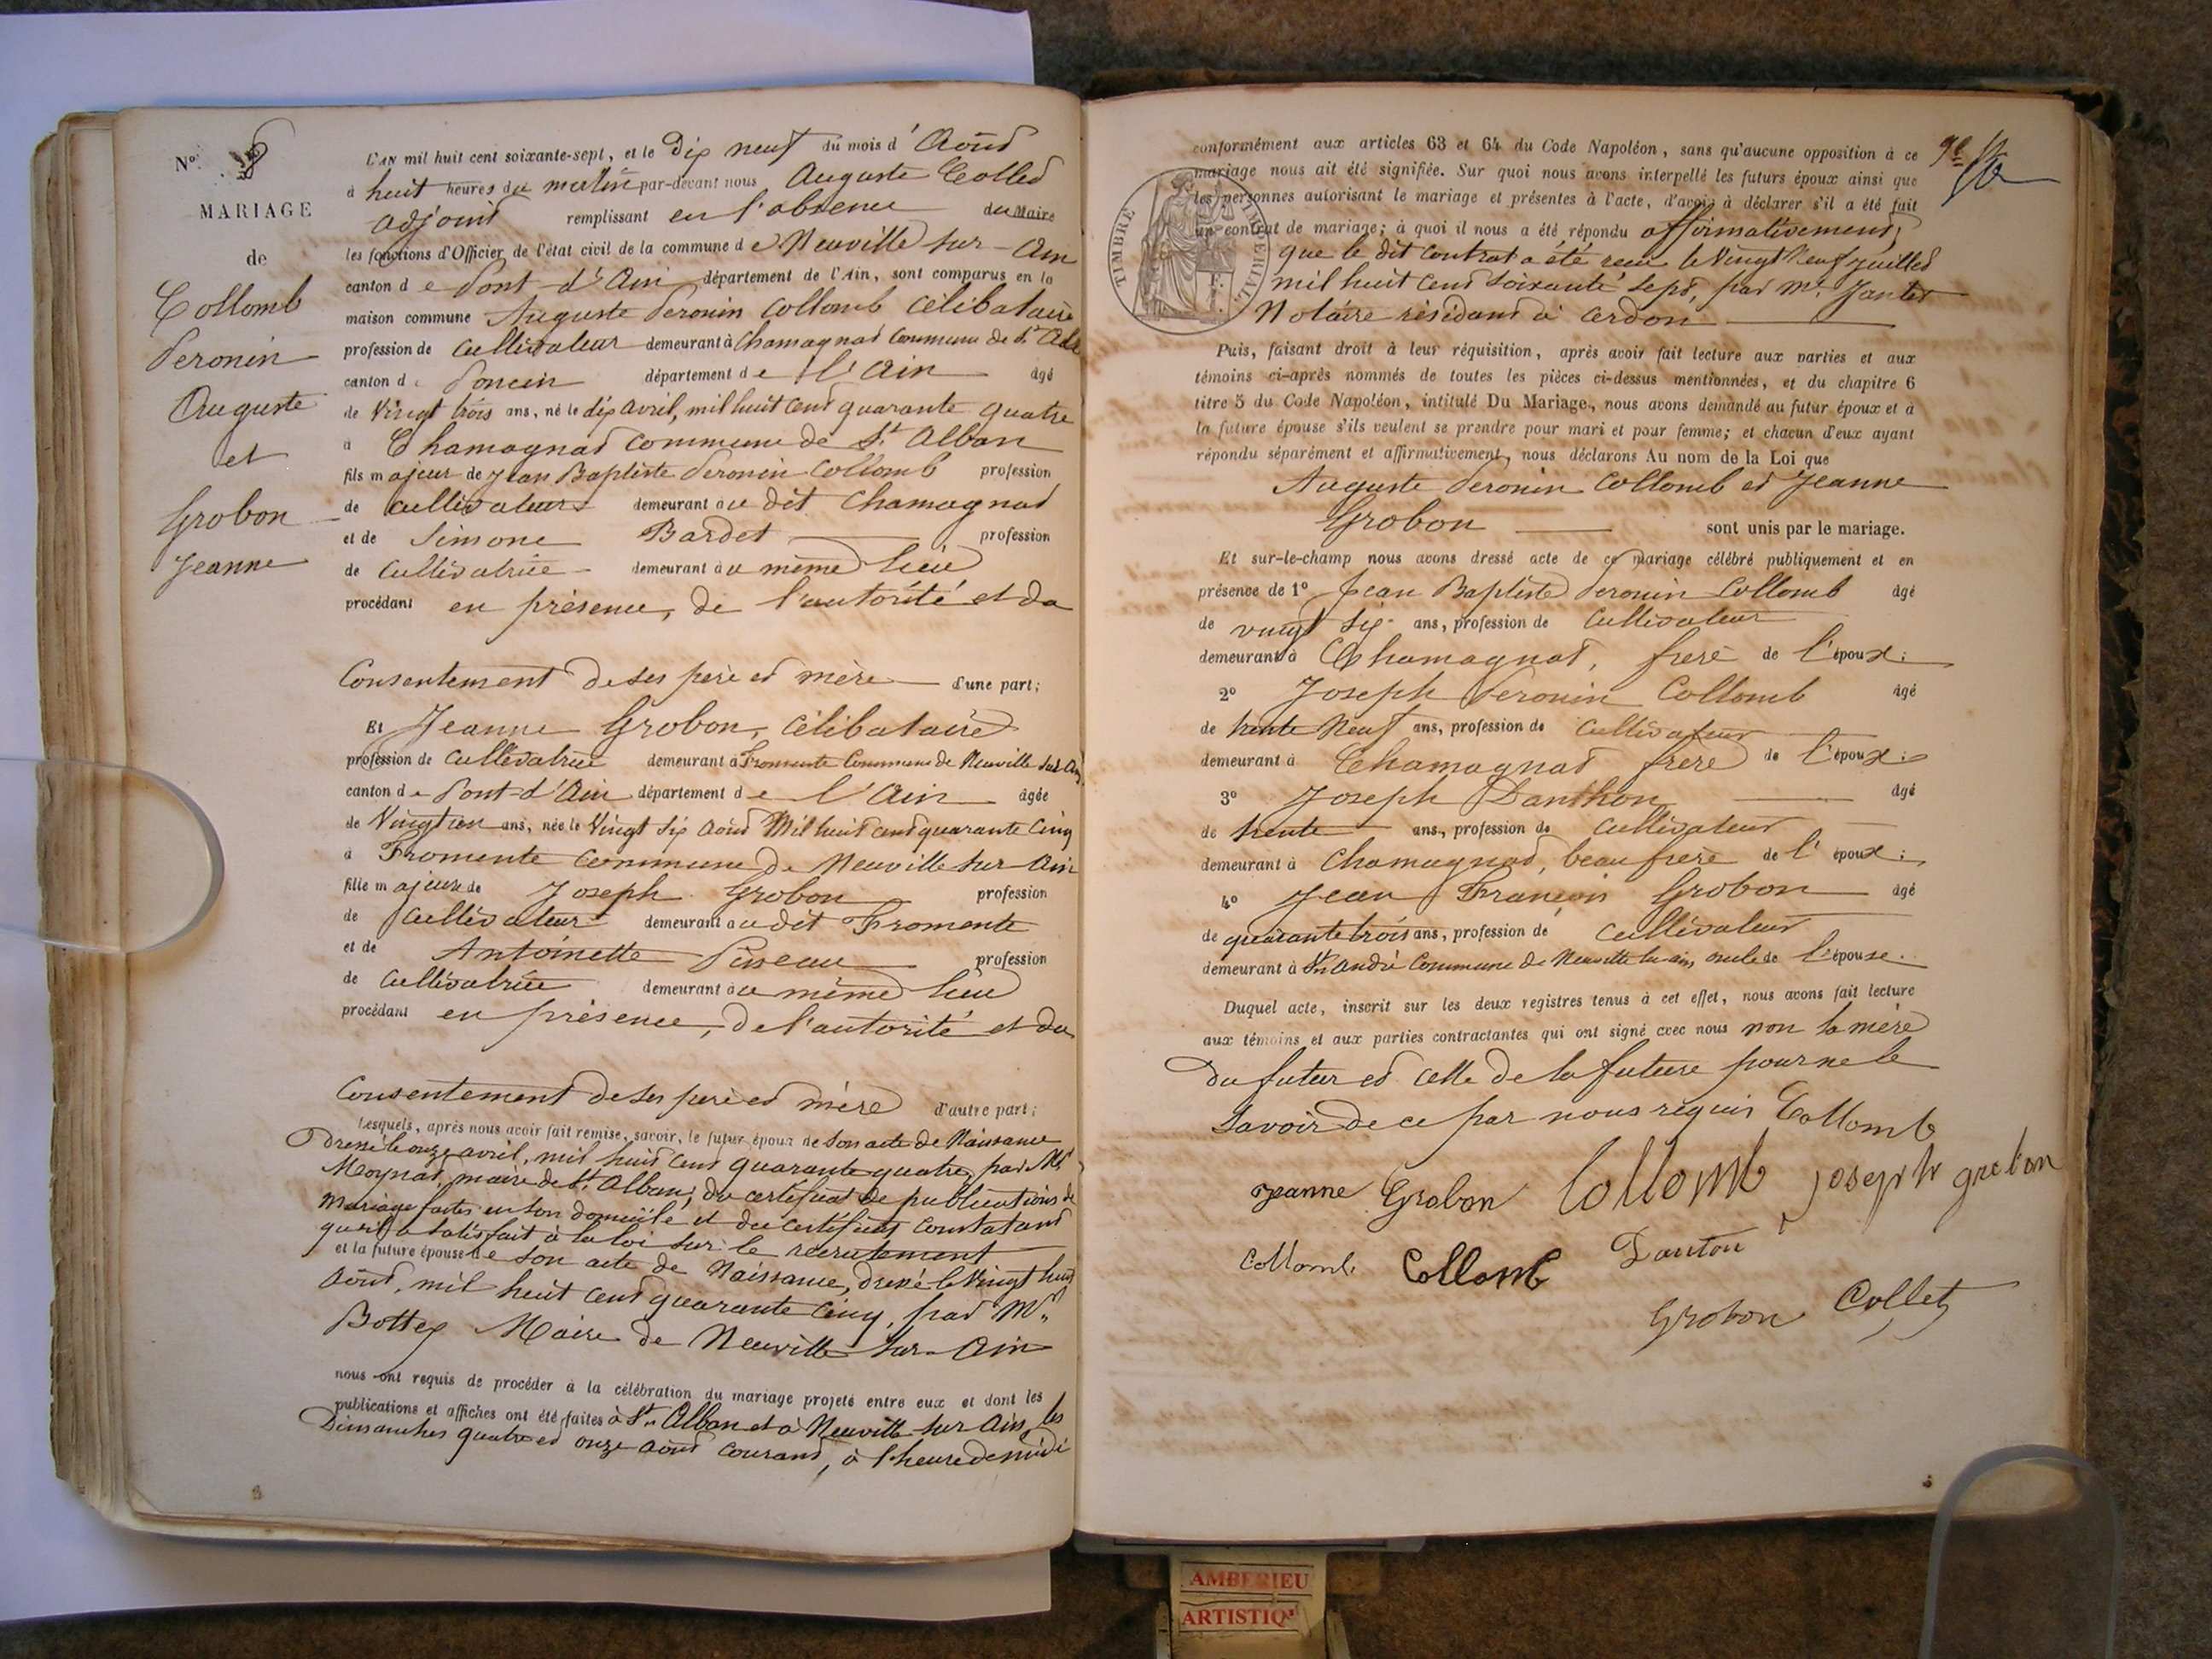 N° 8
MARIAGE
de
Collomb
Peronin
Auguste
et
Grobon
Jeanne
L'AN mil huit cent soixante-sept, et le Dix neuf du mois d'Août
à huit heures du matin par-devant nous Auguste Collet
adjoint remplissant en l'absence du Maire
les fonctions d'Officier de l'état civil de la commune de Neuville sur-Ain
canton de Pont-d'Ain département de l'Ain, sont comparus en la
maison commune Auguste Peronin Collomb célibataire
profession de cultivateur demeurant à Chamagnat Commune de St Alb
canton de Poncin département de l'Ain âgé
de Vingt trois ans, né le dix avril, mil huit cent quarante quatre
à Chamagnat commune de St Alban
fils majeur de Jean Baptiste Peronin Collomb profession
de cultivateur demeurant au dit Chamagnat
et de Simone Bardet profession
de cultivatrice demeurant au même lieu
procédant en présence, de l'autorité et du
Consentement de ses père et mère d'une part;
Et Jeanne Grobon, célibataire
profession de cultivatrice demeurant à Fromente Commune de Neuville sur Ain
canton de Pont-d'Ain département de l'Ain âgée
de Vingt un ans, née le Vingt six août Mil huit cent quarante cinq
à Fromente Commune de Neuville sur-Ain
fille majeure de Joseph Grobon profession
de cultivateur demeurant au dit Fromente
et de Antoinette profession
de cultivatrice demeurant au même lieu
procédant en présence, de l'autorité et du
Consentement de ses père et mère d'autre part;
Lesquels, après nous avoir fait remise, savoir, le futur époux de son acte de Naissance
dressé le onze avril, mil huit cent quarante quatre, par Mr
Moynat, maire de St Alban, du certificat de publications de
Mariage faites en son domicile et du certificat constatant
qu'il a satisfait à la loi sur le recrutement
et la future épouse de son acte de Naissance, dressé le Vingt huit
Août, mil huit cent quarante cinq, par Mr
Bottex Maire de Neuville sur-Ain
nous ont requis de procéder à la célébration du mariage projeté entre eux et dont les
publications et affiches ont été faites à St Alban et à Neuville sur Ain, les
Dimanches quatre et onze août courant, à l'heure de midi
conformément aux articles 63 et 64 du Code Napoléon, sans qu'aucune opposition à ce
mariage nous ait été signifiée. Sur quoi nous avons interpellé les futurs époux ainsi que
les personnes autorisant le mariage et présentes à l'acte, d'avoir à déclarer s'il a été fait
un contrat de mariage; à quoi il nous a été répondu affirmativement,
que le dit contrat a été reçu le Vingt neuf juillet
mil huit cent soixante sept, par Me Janter
Notaire résidant à Cerdon
TIMBRE IMPERIAL
Puis, faisant droit à leur réquisition, après avoir fait lecture aux parties et aux
témoins ci-après nommés de toutes les pièces ci-dessus mentionnées, et du chapitre 6
titre 5 du Code Napoléon, intitulé Du Mariage, nous avons demandé au futur époux et à
la future épouse s'ils veulent se prendre pour mari et pour femme; et chacun d'eux ayant
répondu séparément et affirmativement, nous déclarons Au nom de la Loi que
Auguste Peronin Collomb et Jeanne
Grobon sont unis par le mariage.
Et sur-le-champ nous avons dressé acte de ce mariage célébré publiquement et en
présence de 1° Jean Baptiste Peronin Collomb âgé
de vingt six ans, profession de cultivateur
demeurant à Chamagnat, frère de l'époux;
2° Joseph Peronin Collomb âgé
de trente Neuf ans, profession de cultivateur
demeurant à Chamagnat frère de l'époux;
3° Joseph Danthon âgé
de trente ans, profession de cultivateur
demeurant à Chamagnat, beau frère de l'époux;
4° Jean François Grobon âgé
de quarante trois ans, profession de cultivateur
demeurant à St André Commune de Neuville sur ain, oncle de l'épouse.
Duquel acte, inscrit sur les deux registres tenus à cet effet, nous avons fait lecture
aux témoins et aux parties contractantes qui ont signé avec nous non la mère
du futur et celle de la future pour ne le
savoir de ce par nous requis Collomb
Jeanne Grobon Collomb joseph grobon
Collomb Collomb Danton
Grobon Collet
AMBERIEU
ARTISTIQ